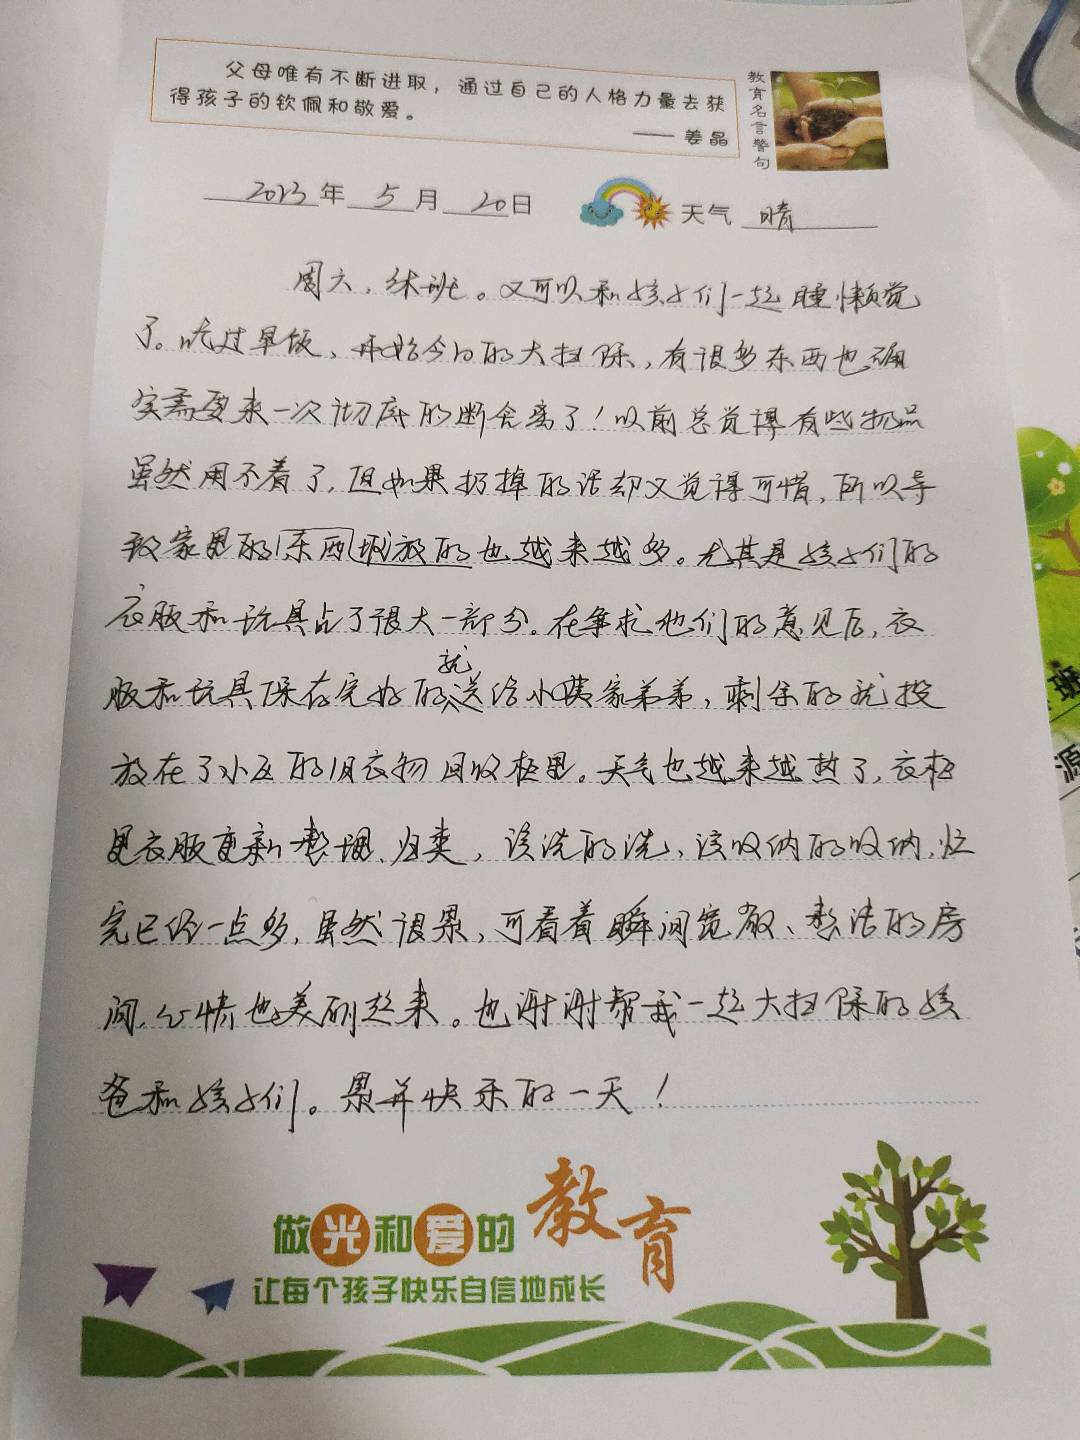 父母唯有不断进取，通过自己的人格力量去获
得孩子的钦佩和敬爱。
—— 姜晶
教育名言警句
2023年 5 月 20日
天气 晴
周六，休班。又可以和孩子们一起睡懒觉
了。吃过早饭，开始今日的大扫除，有很多东西也确
实需要来一次彻底的断舍离了！以前总觉得有些物品
虽然用不着了，但如果扔掉的话却又觉得可惜，所以导
致家里的东西堆放的也越来越多。尤其是孩子们的
衣服和玩具占了很大一部分。在争求他们的意见后，衣
服和玩具保存完好的就送给小姨家弟弟，剩余的就投
放在了小区的旧衣物回收柜里。天气也越来越热了，衣柜
里衣服更新整理、归类，该洗的洗，该收纳的收纳，忙
完已经一点多，虽然很累，可看着瞬间宽敞、整洁的房
间，心情也美丽起来。也谢谢帮我一起大扫除的孩
爸和孩子们。累并快乐的一天！
做光和爱的教育
让每个孩子快乐自信地成长
班
源